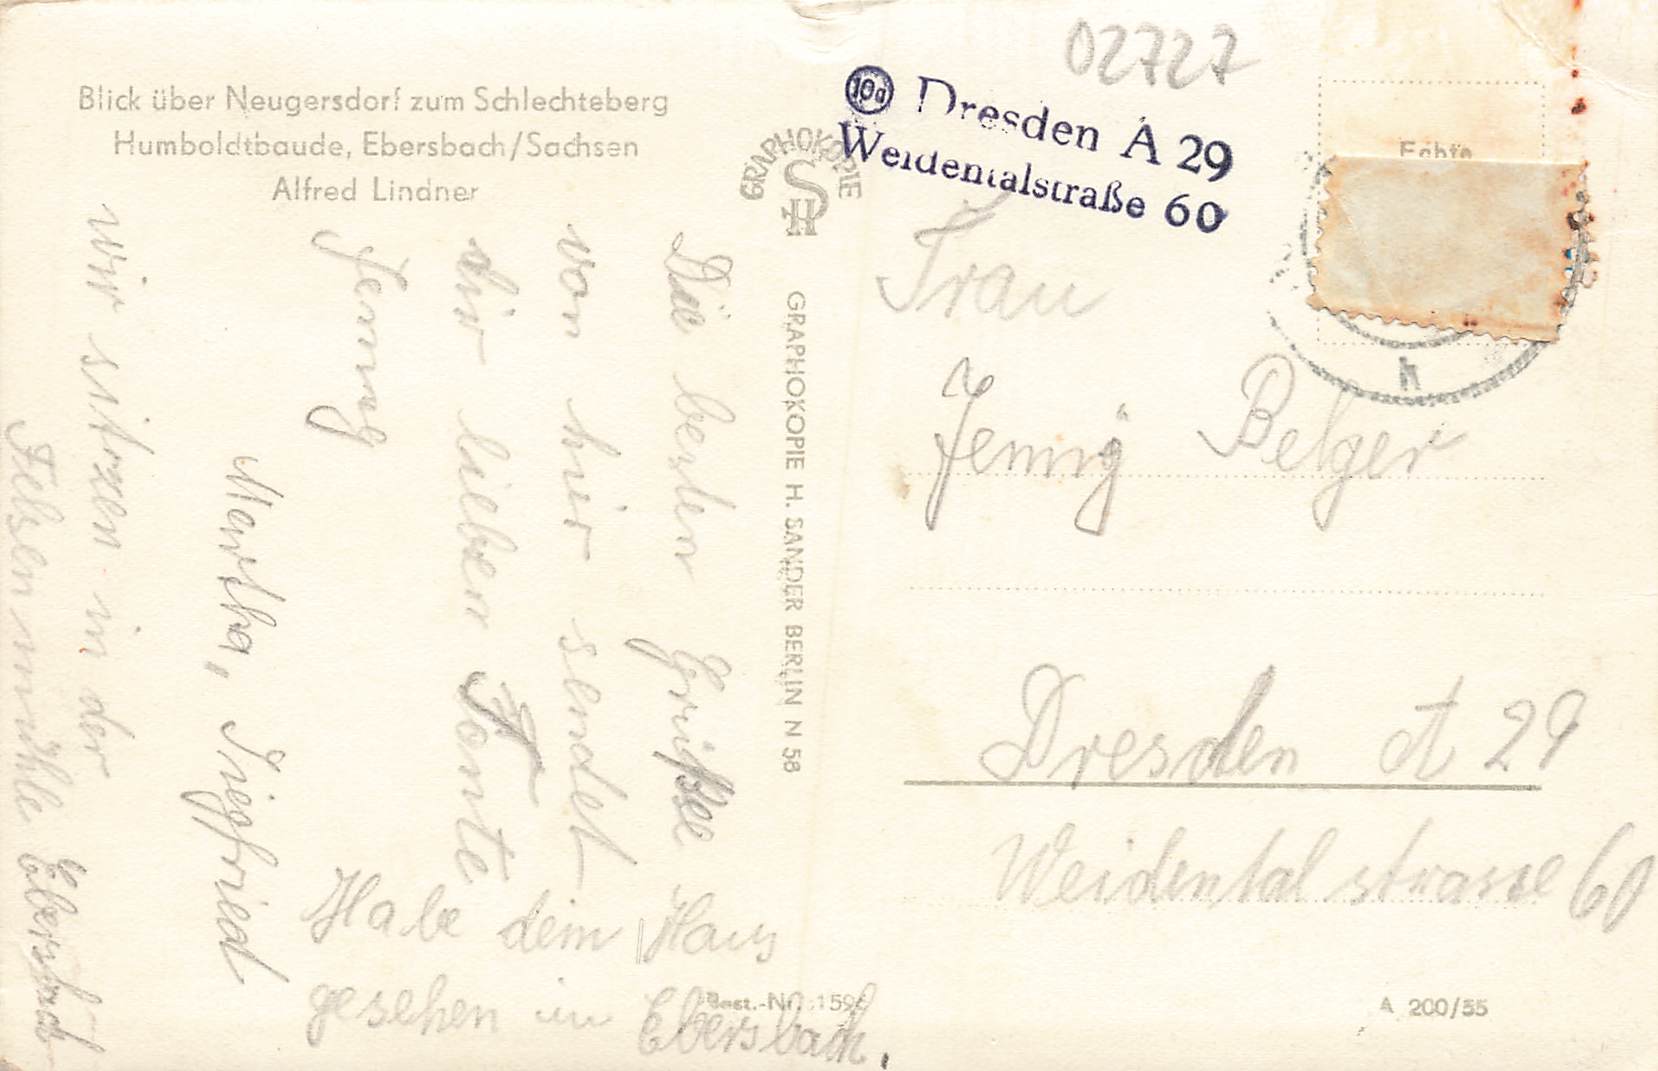 Blick über Neugersdorf zum Schlechteberg
Humboldtbaude, Ebersbach/Sachsen
Alfred Lindner
Die besten Grüße
von hier sendet
dir lieben Tante
Jenny
Martha, Siegfried
wir sitzen in der
Felsenmühle Ebersbach
Habe dein Haus
gesehen in Ebersbach.
GRAPHOKOPIE
SH
GRAPHOKOPIE H. SANDER BERLIN N 58
Best.-Nr. 159
02727
10a Dresden A 29
Weidentalstraße 60
Echte
h
Frau
Jenny Belger
Dresden A 29
Weidentalstrasse 60
A 200/55